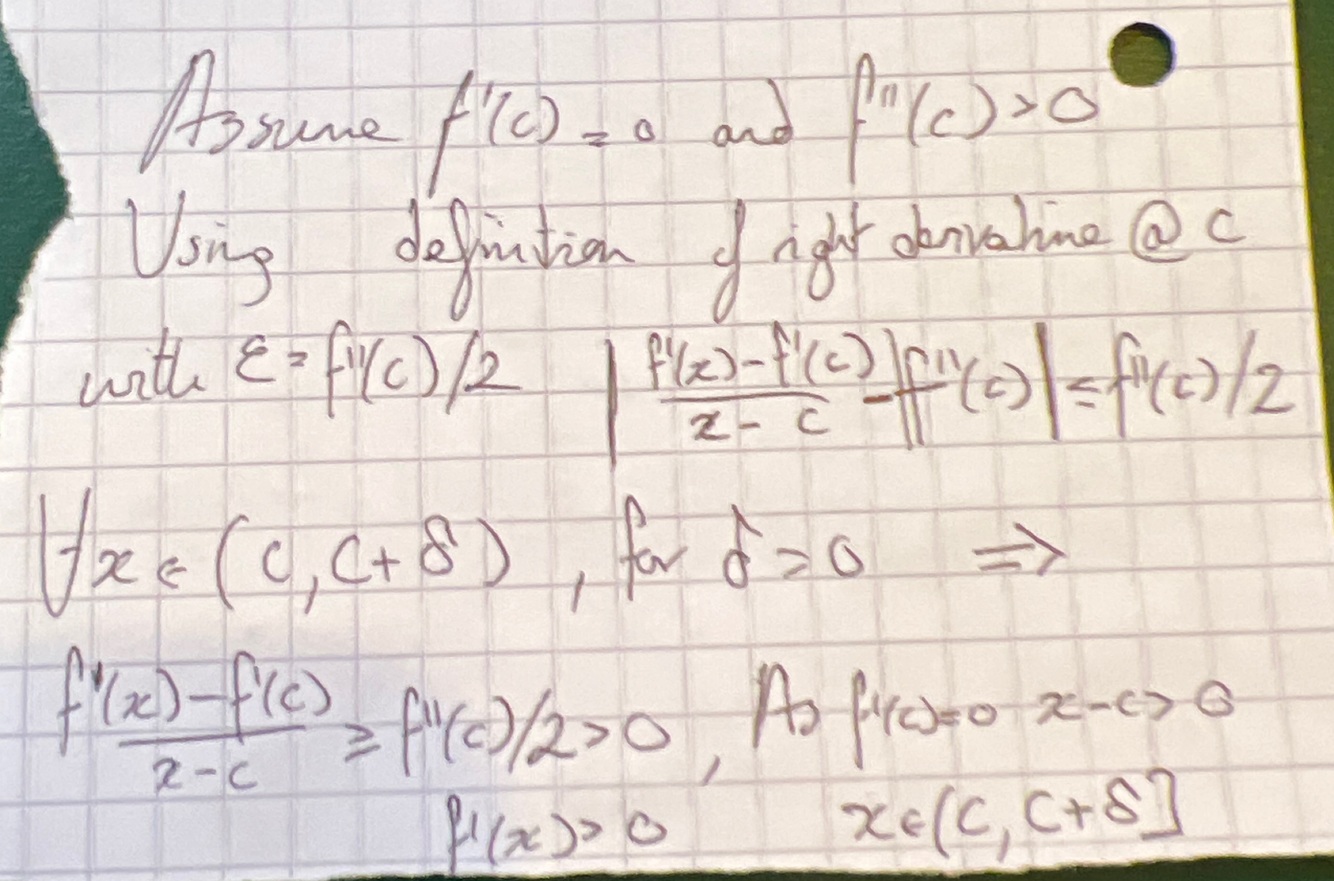 Assume f'(c) = 0 and f''(c) > 0
Using definition of right derivative @ c
with ε = f''(c)/2 | f'(x) - f'(c) / x - c - f''(c) | ≤ f''(c)/2
∀x ∈ (c, c + δ), for δ > 0 ⇒
f'(x) - f'(c) / x - c ≥ f''(c)/2 > 0, As f'(c) = 0 x - c > 0
f'(x) > 0 x ∈ (c, c + δ]